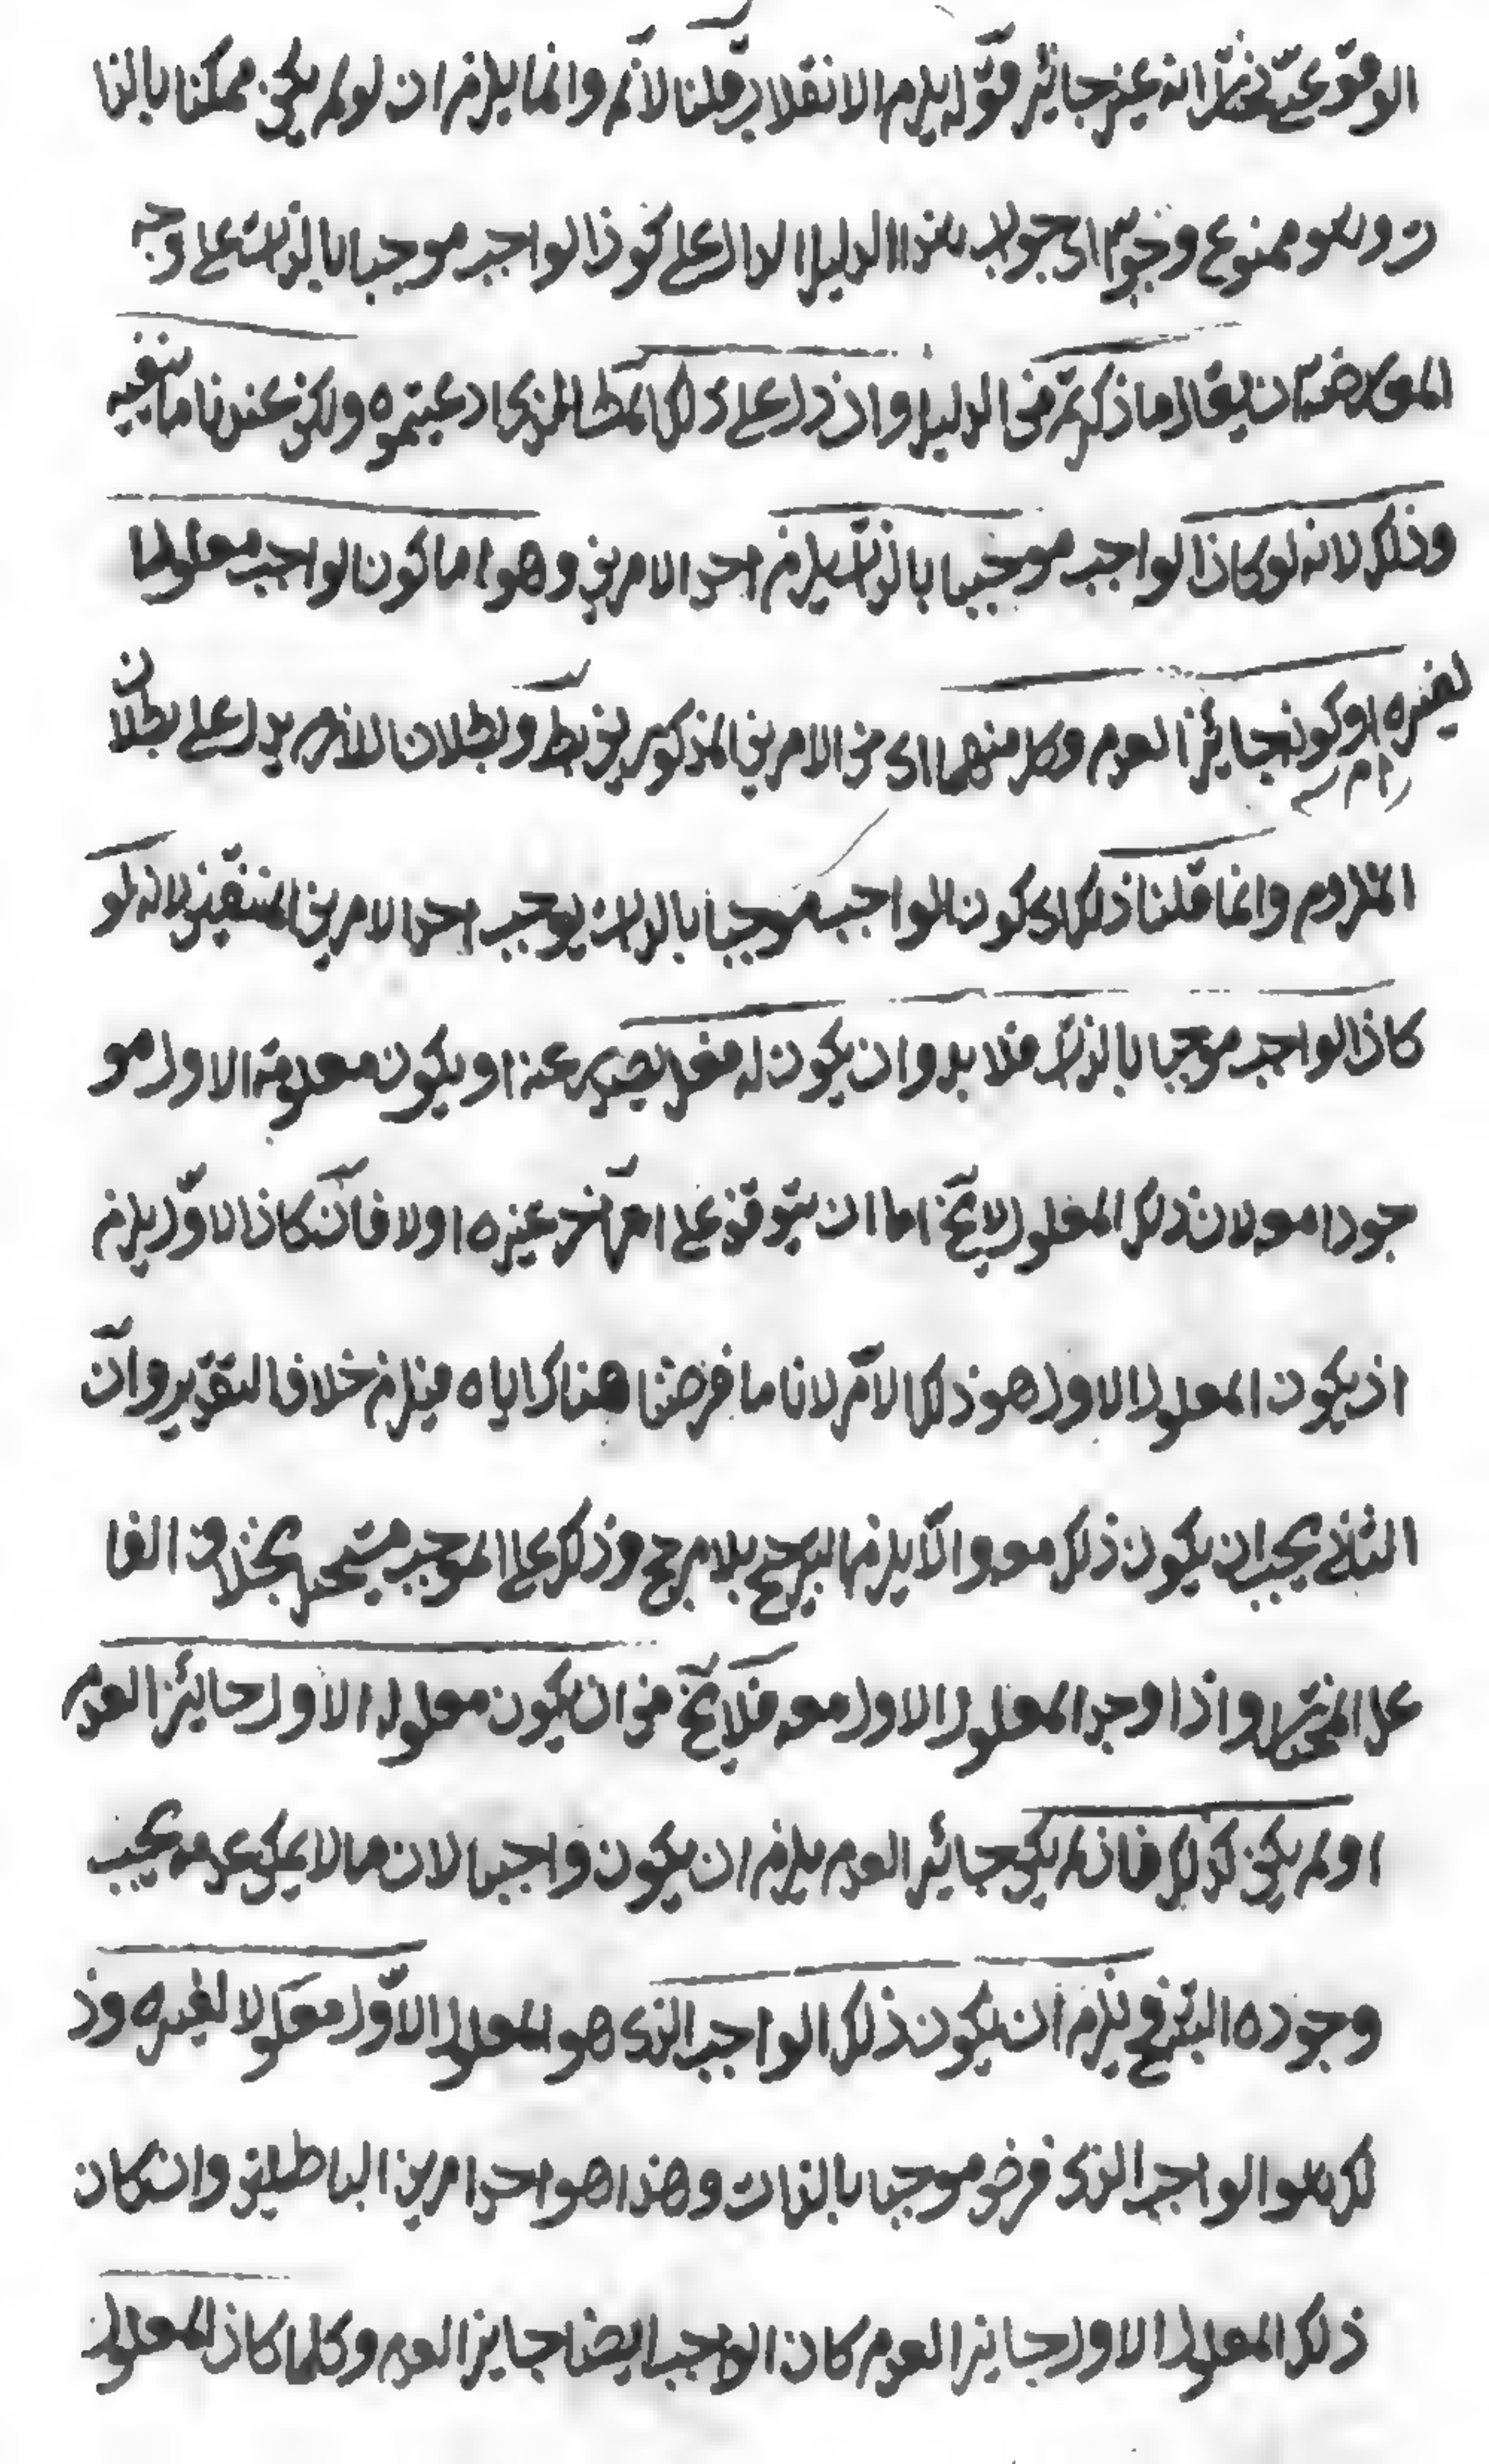 الوقوع نختار انه غير جائز قوله يلزم الانقلاب قلنا لانم وانما يلزم ان لو لم يكن ممكنا بالذا
ت وهو ممنوع وجوابه اى جواب هذا الدليل الدال على كون الواجب موجبا بالذات على وجه
المعارضة ان يقال ما ذكرتم من الدليل وان دل على ذلك المط الذى ادعيتموه ولكن عندنا ما ينفيه
وذلك لانه لو كان الواجب موجبا بالذات يلزم احد الامرين وهو اما كون الواجب معلولا
لغيره او كونه جائز العدم وكل منهما اى من الامرين المذكورين بط وبطلان اللازم يدل على بطلان
الملزوم وانما قلنا ذلك اى كون الواجب موجبا بالذات يوجب احد الامرين المنتفيين لانه لو
كان الواجب موجبا بالذات فلا بد وان يكون له فعل يصدر عنه او يكون معلوله الاول مو
جودا معه لان ذلك المعلول لا يخ اما ان يتوقف على امر اخر غيره اولا فان كان الاول يلزم
ان يكون المعلول الاول هو ذلك الامر لانا ما فرضنا هناك اياه فيلزم خلاف التقدير وان
الثانى يجب ان يكون ذلك معه والا يلزم الترجيح بلا مرجح وذلك على الموجب مستحيل بخلاف الفا
عل المختار واذا وجد المعلول الاول معه فلا يخ من ان يكون معلوله الاول جائز العدم
او لم يكن كذلك فان لم يكن جائز العدم يلزم ان يكون واجبا لان ما لا يمكن عدمه يجب
وجوده البتة فح يلزم ان يكون ذلك الواجب الذى هو المعلول الاول معلولا لغيره وذ
لك هو الواجب الذى فرض موجبا بالذات وهذا هو احد امرين الباطلين وان كان
ذلك المعلول الاول جايز العدم كان الواجب ايضا جايز العدم وكلما كان المعلول